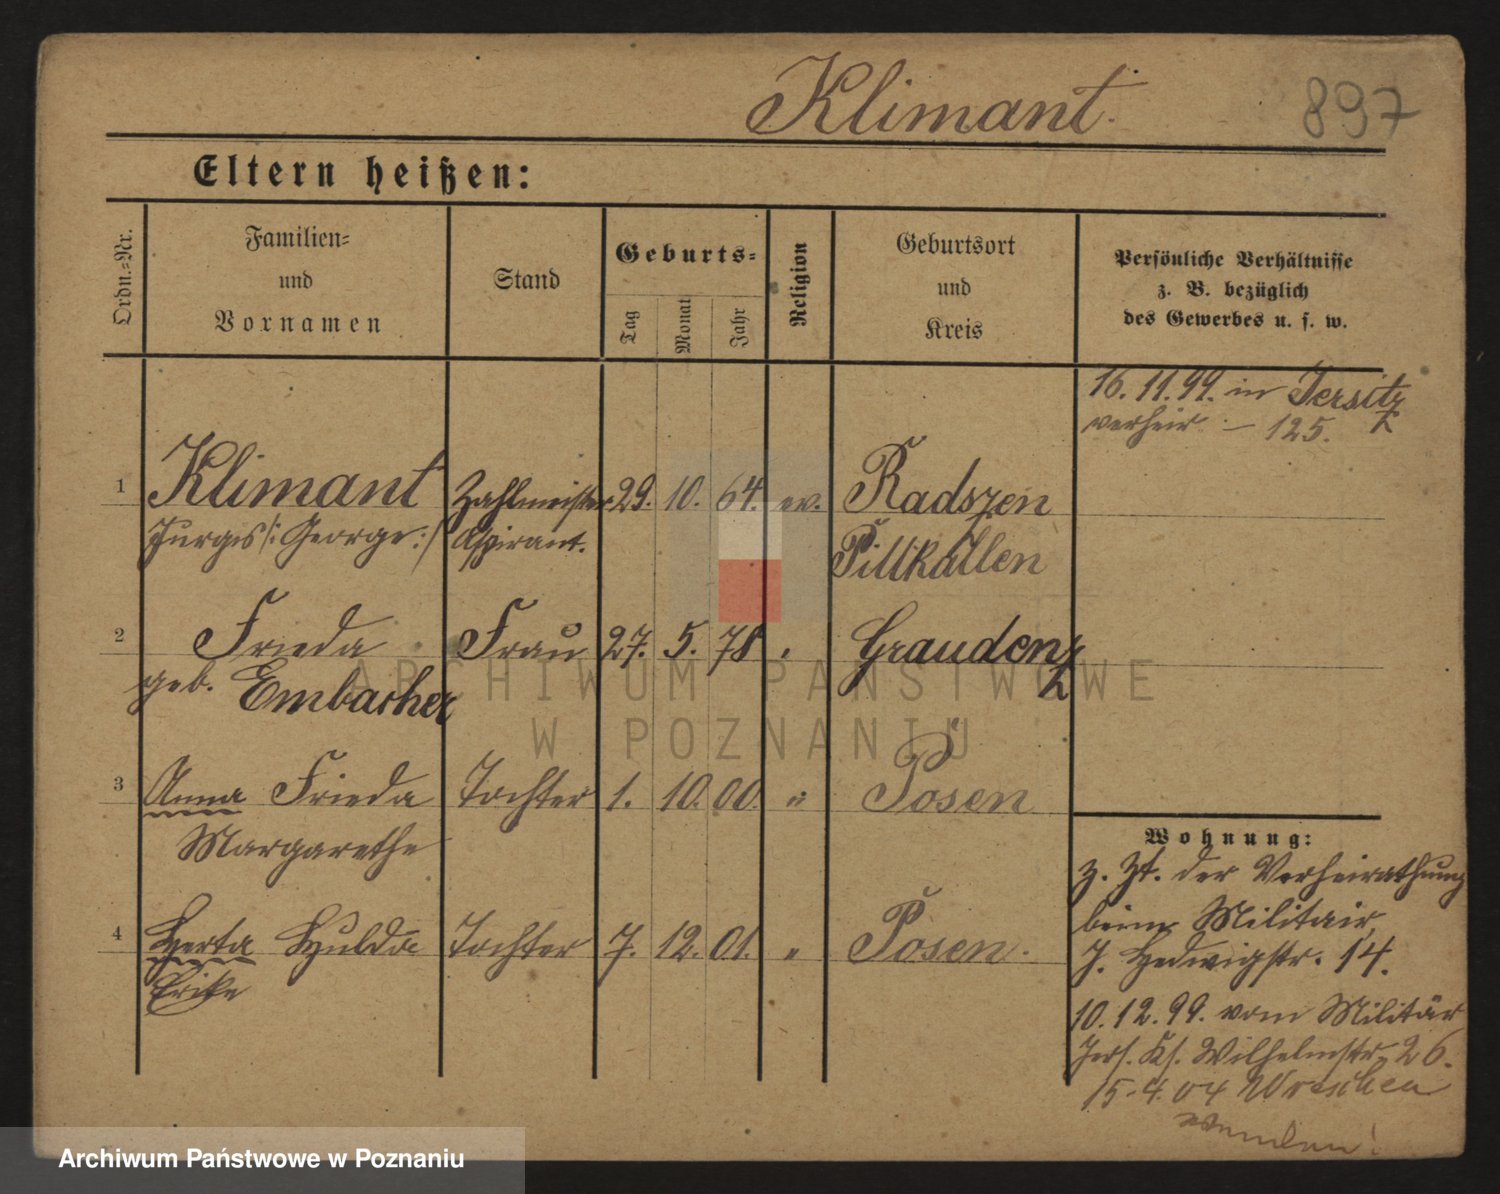 Klimant.
897
Eltern heißen:
Ordn.-Nr.
Familien- und Vornamen
Stand
Geburts-
Tag
Monat
Jahr
Religion
Geburtsort und Kreis
Persönliche Verhältnisse
z. B. bezüglich
des Gewerbes u. s. w.
16. 11. 99. in Jersitz
verheir. – 125.
1 Klimant Zahlmeister 29. 10. 64. ev. Radszen
Jurgis /: George :/ Aspirant. Pillkallen
2 Frieda Frau 27. 5. 78 " Graudenz
geb. Embacher
3 Anna Frieda Tochter 1. 10. 00. " Posen
Margarethe
4 Herta Hulda Tochter 7. 12. 01. " Posen.
Erika
Wohnung:
z. Zt. der Verheirathung
beim Militair,
J. Hedwigstr. 14.
10. 12. 99. vom Militär
Jers. Ks. Wilhelmstr. 26.
15. 4. 04 Wreschen
wenden!
ARCHIWUM PAŃSTWOWE
W POZNANIU
Archiwum Państwowe w Poznaniu